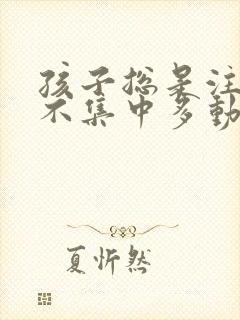 孩子总是注
不集中多動
夏忻然